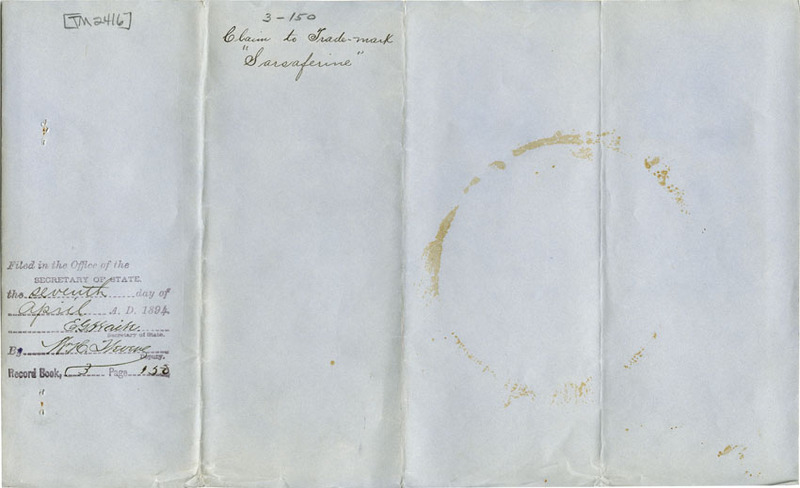 [TM2416]
3-150
Claim to Trade-mark
"Sarsaferine"
Filed in the Office of the
SECRETARY OF STATE.
the seventh day of
April A. D. 1894
E G Waite
Secretary of State.
By
Deputy.
Record Book, 3 Page 150